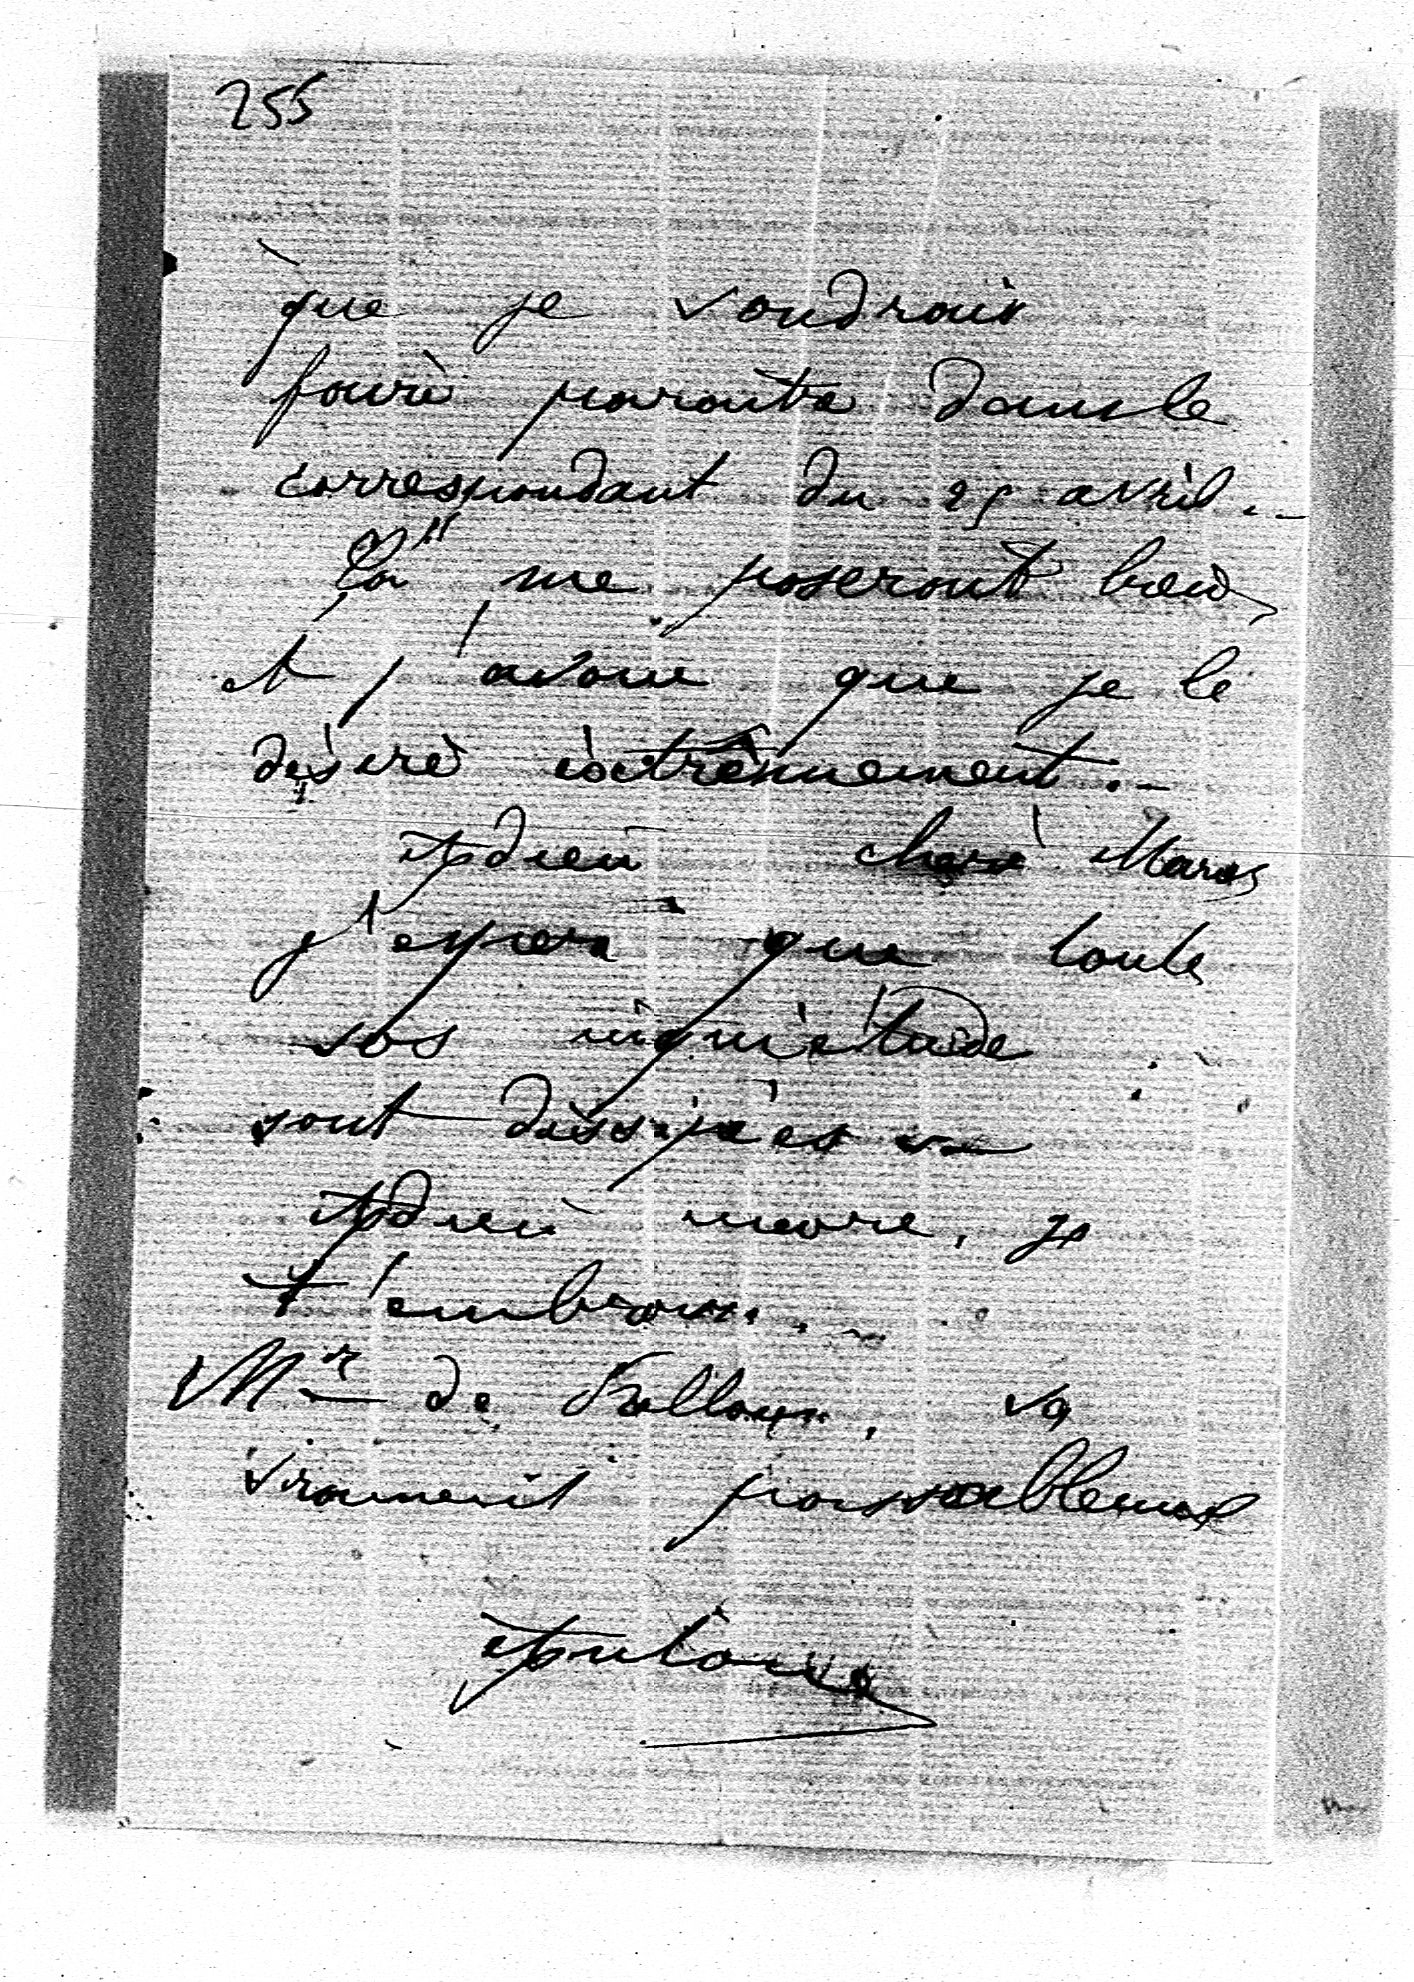 255
que je voudrais
faire paraitre dans le
correspondant du 25 avril..
Ça me poseront bien,
et j'avoue que je le
désire extrêmement..
Adieu chère
j'espère que toute
vos inquiétude
sont dissipées
Adieu encore, je
t'embrasse..
Mr de Falloux, va
vraiment passablement
Antoine